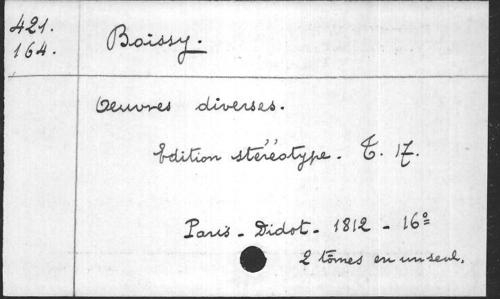 421.
164.
Boissy.
Oeuvres diverses.
Edition stéréotype. T. 17.
Paris - Didot - 1812 - 16º
2 tômes en un seul.